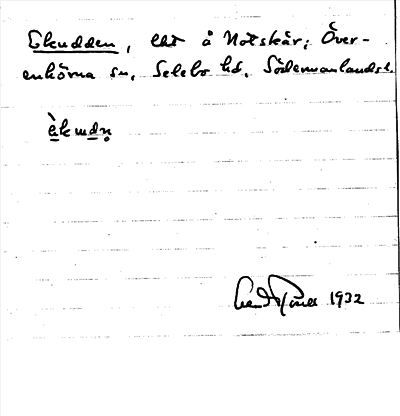 Ekudden, ehr å Notskär; Över-
enhörna sn, Selebo hd, Södermanlandsl.
èkɯdn̥
1932